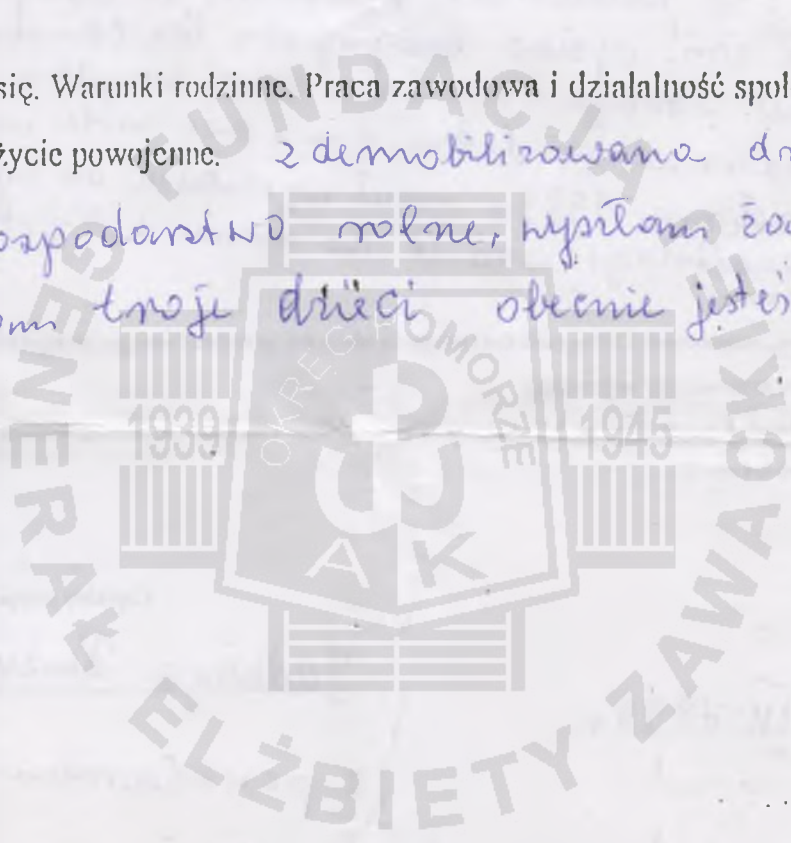 się. Warunki rodzinne. Praca zawodowa i działalność społ
życie powojenne. zdemobilizowana
ospodarstwo rolne,
troje dzieci obecnie jesteś
FUNDACJA GENERAŁ ELŻBIETY ZAWACKIEJ
OKRĘG POMORZE
1939 1945
A K